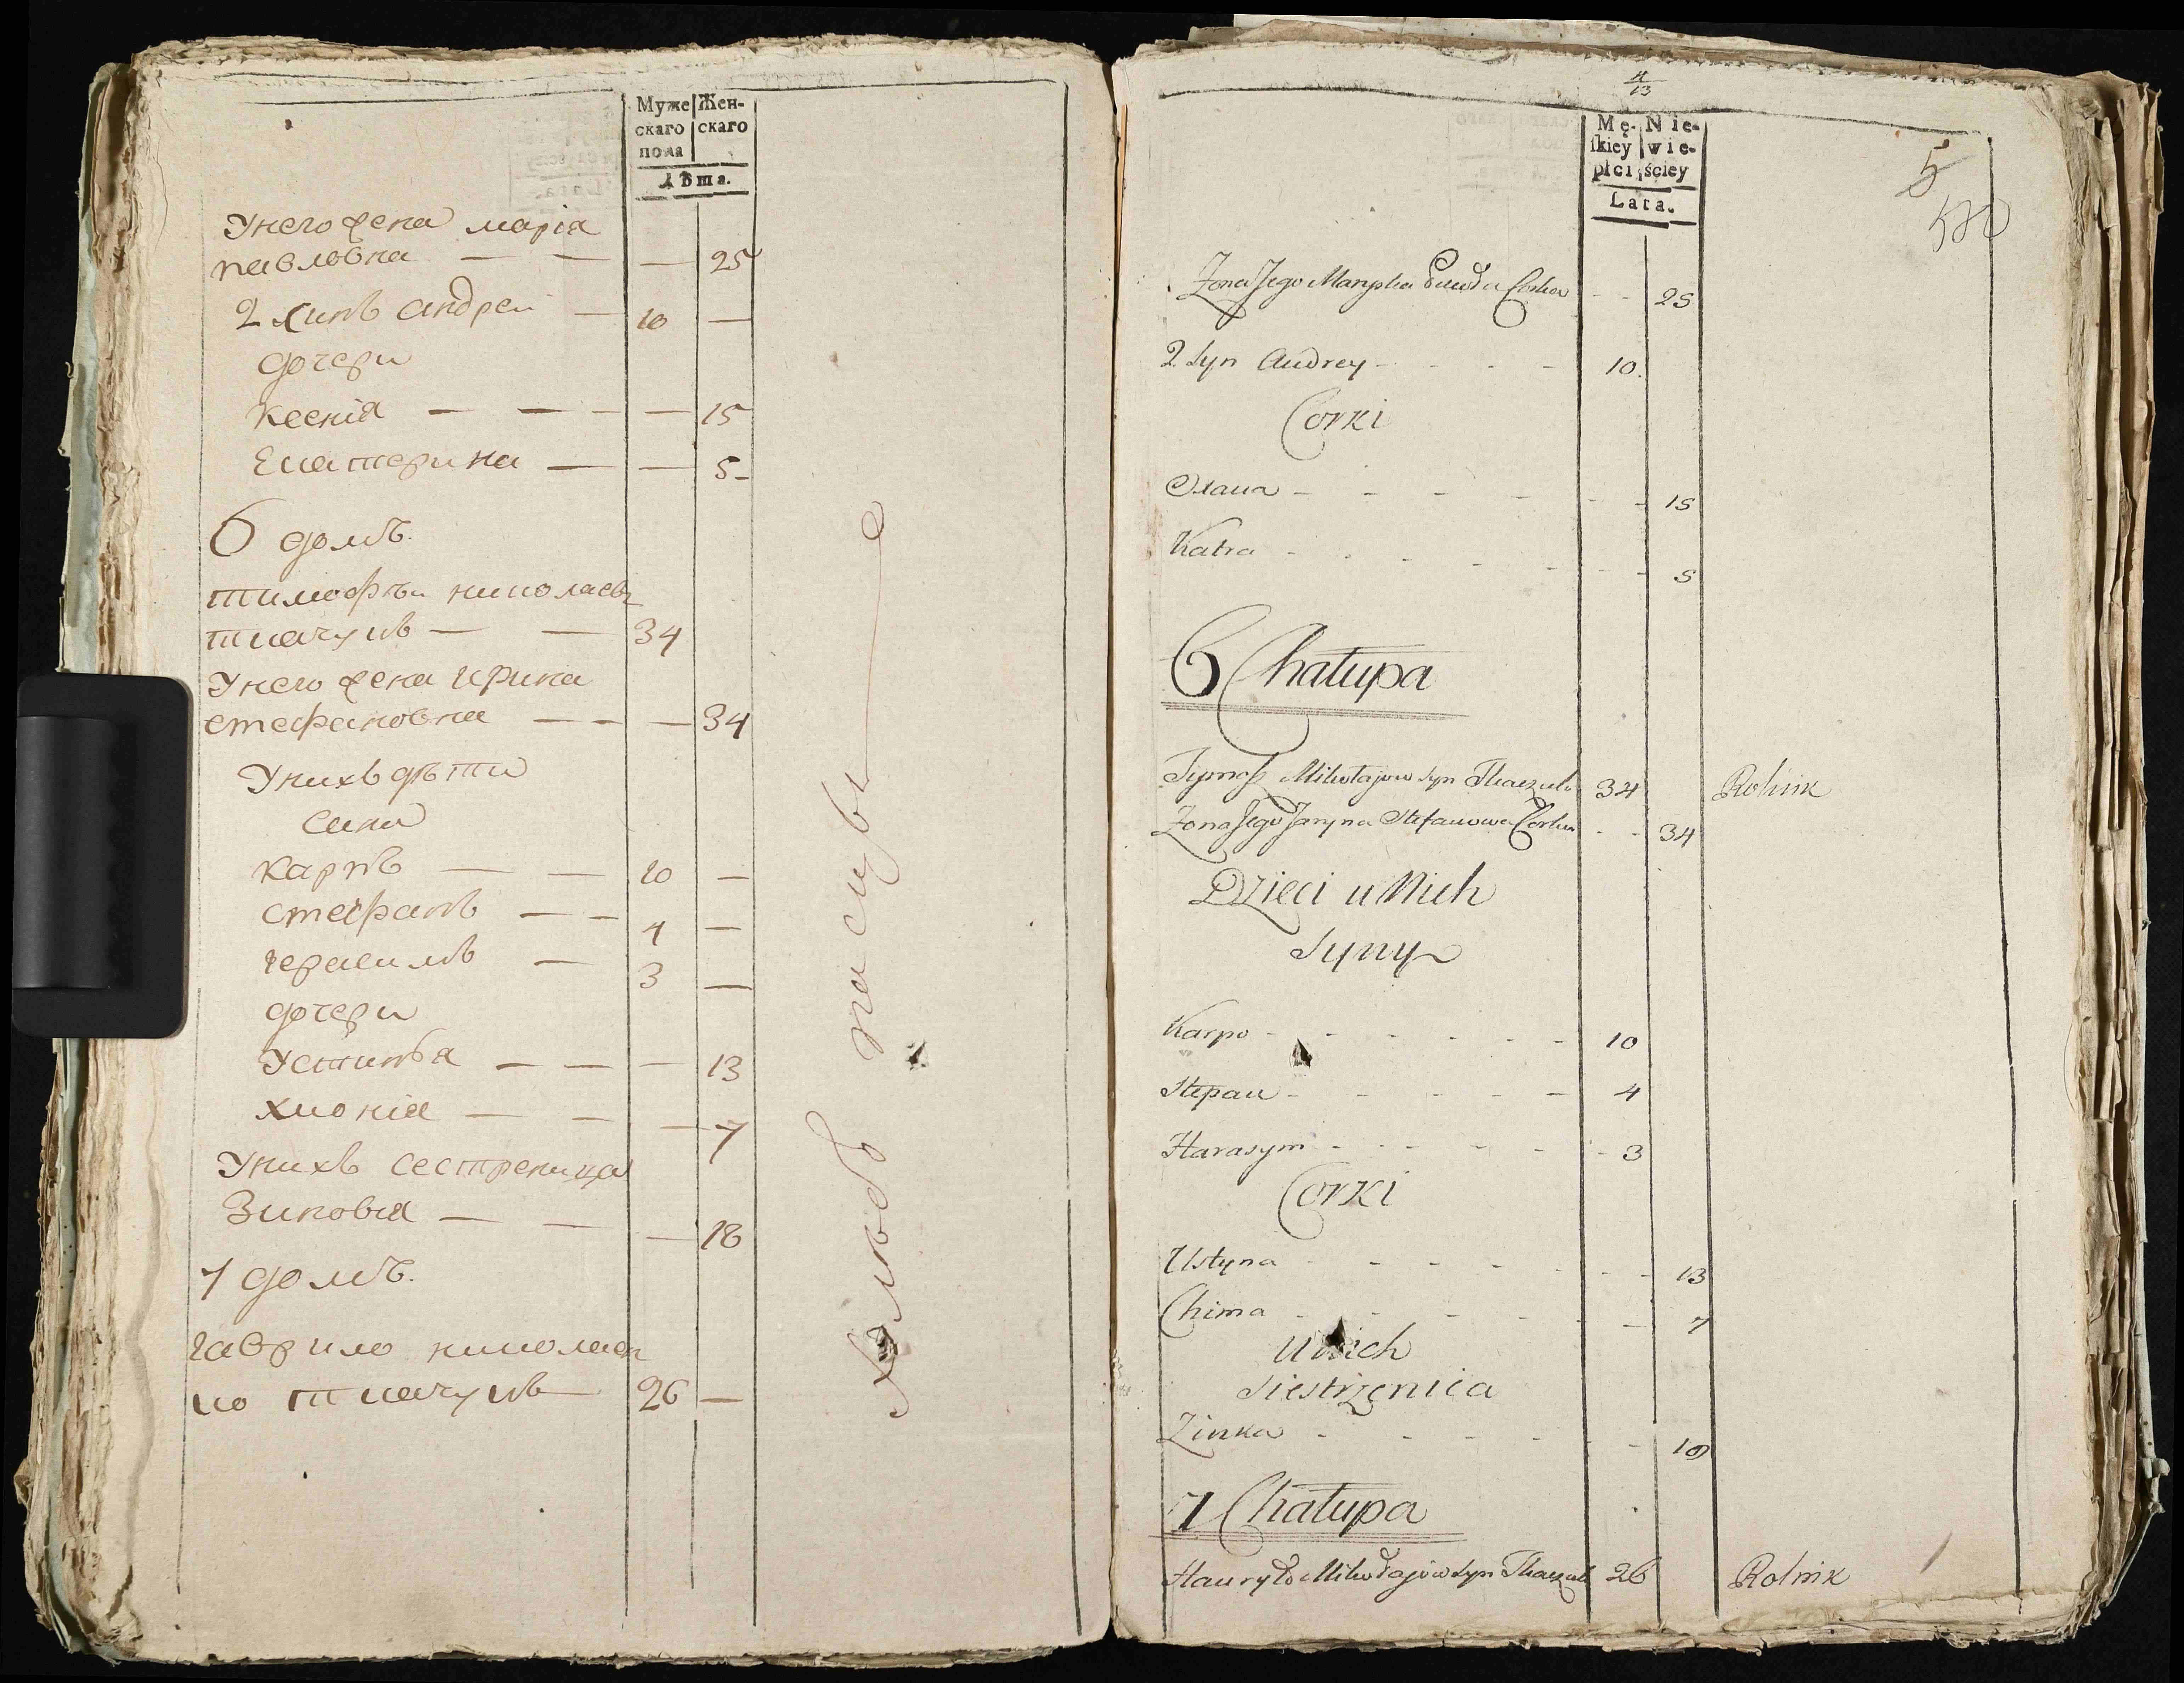 Муже Жен-
скаго скаго
пола
Лѣта.
Унего жена марія
павловна — — — 25
2 синъ андреи — 10 —
дочери
ксенія — — — — 15
Екатерина — — 5-
6 домъ.
тимофѣи николаевъ
ткачукъ — — 34
Унего жена ирина
стефановна — — — 34
Унихъ дѣти
сини
карпъ — — 10 —
стефанъ — — 4 —
герасимъ — 3 —
дочери
Устинья — — — 13
хионія — — — 7
Унихъ сестреница
Зиновія — — — 18
7 домъ.
гаврило николаен
ко ткачукъ — 26 —
хлѣбо пасцы
4/13
Mę- Nie-
skiey wie-
płci ściey
Lata.
5
Zona Jego Maryska Pawła Corka - - 25
2. Syn Andrey - - - - 10.
Corki
Oxana - - - - - - 15
Katra - - - - - - - 5
6 Chałupa
Tymosz Mikołajow syn Tkaczuk 34 Rolnik
Zona Jego Jaryna Stefanowa Corka - - 34
Dzieci u Nich
Syny
Karpo - - - - - - 10
Stepan - - - - - 4
Harasym - - - - - 3
Corki
Ustyna - - - - - - - 13
Chima - - - - - - - 7
u Nich
Siestrzenica
Zinka - - - - - - 18
7 Chałupa
Hauryło Mikołajów syn Tkaczuk 26 Rolnik